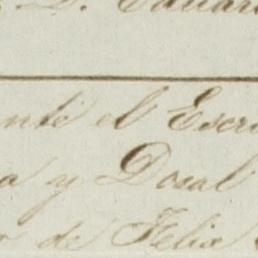 D. Eduar
ante el Escri
a y Dosal
de Felix